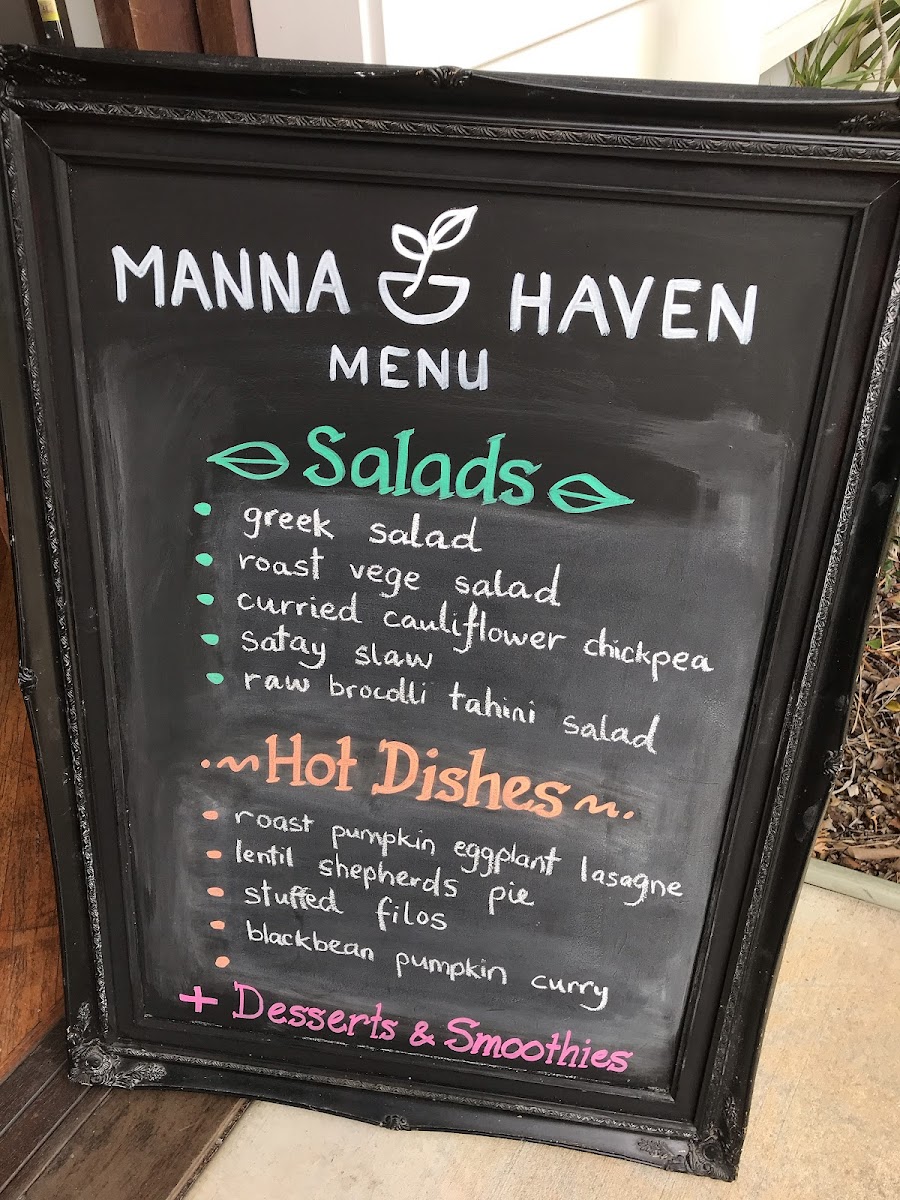 MANNA HAVEN
MENU
Salads
greek salad
roast vege salad
curried cauliflower chickpea
satay slaw
raw brocolli tahini salad
Hot Dishes
roast pumpkin eggplant lasagne
lentil shepherds pie
stuffed filos
blackbean pumpkin curry
+ Desserts & Smoothies